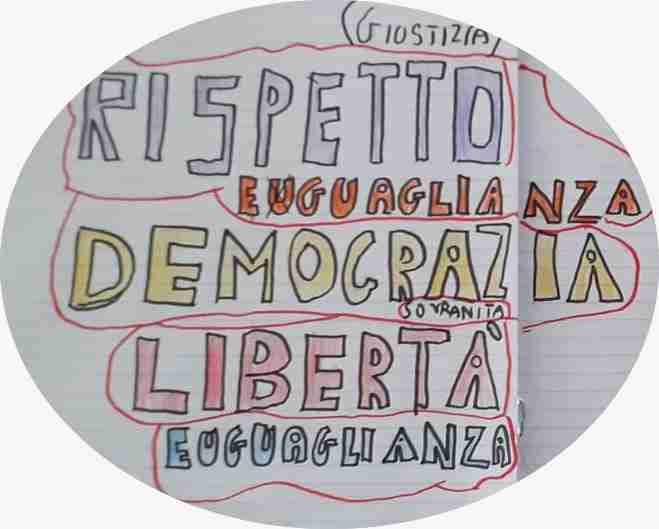 (GIOSTIZIA)
RISPETTO
EUGUAGLIANZA
DEMOCRAZIA
SOVRANITÀ
LIBERTÀ
EUGUAGLIANZA